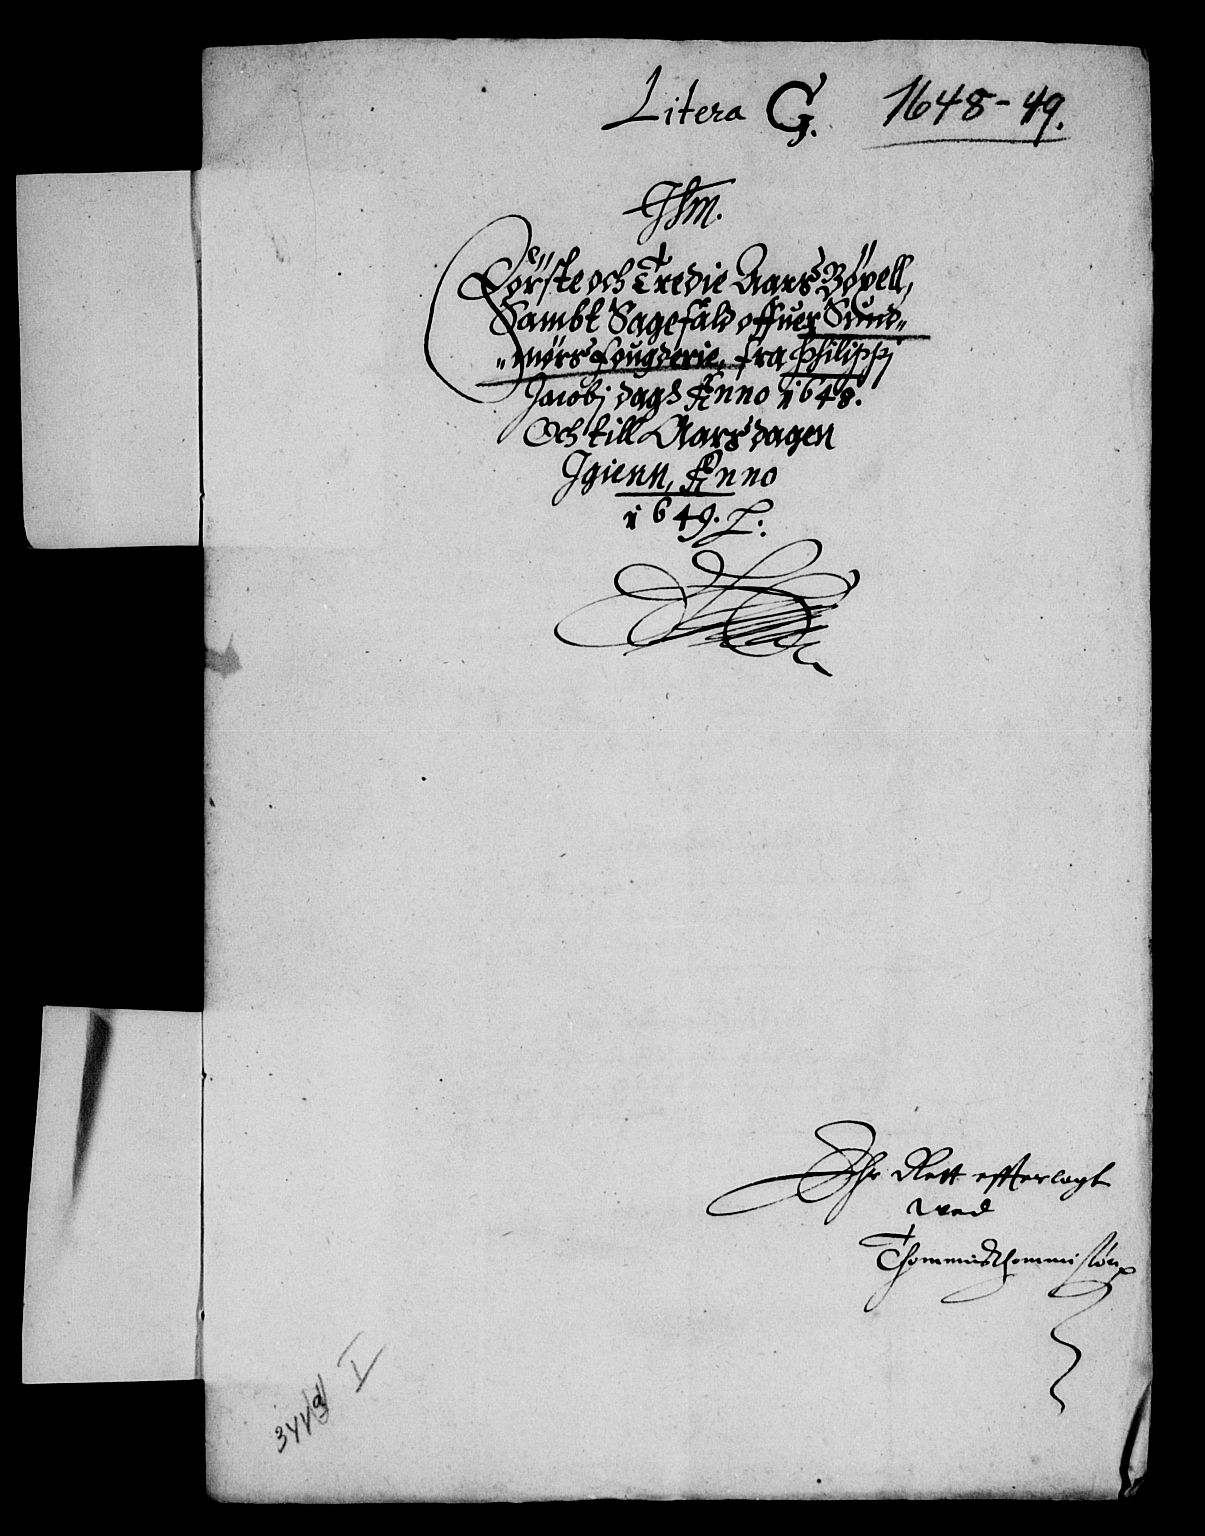 Litera G. 1648-49.
Förste och Tredie Aars Böxell,
Sambt Sagefald offuer Sund„
„mörs fougderie, fra Philippi
Jacobj dag Anno 1648.
Och till Aarsdagen
Igienn, Anno
1649.
Ehr Rett effterlagt
wed
I